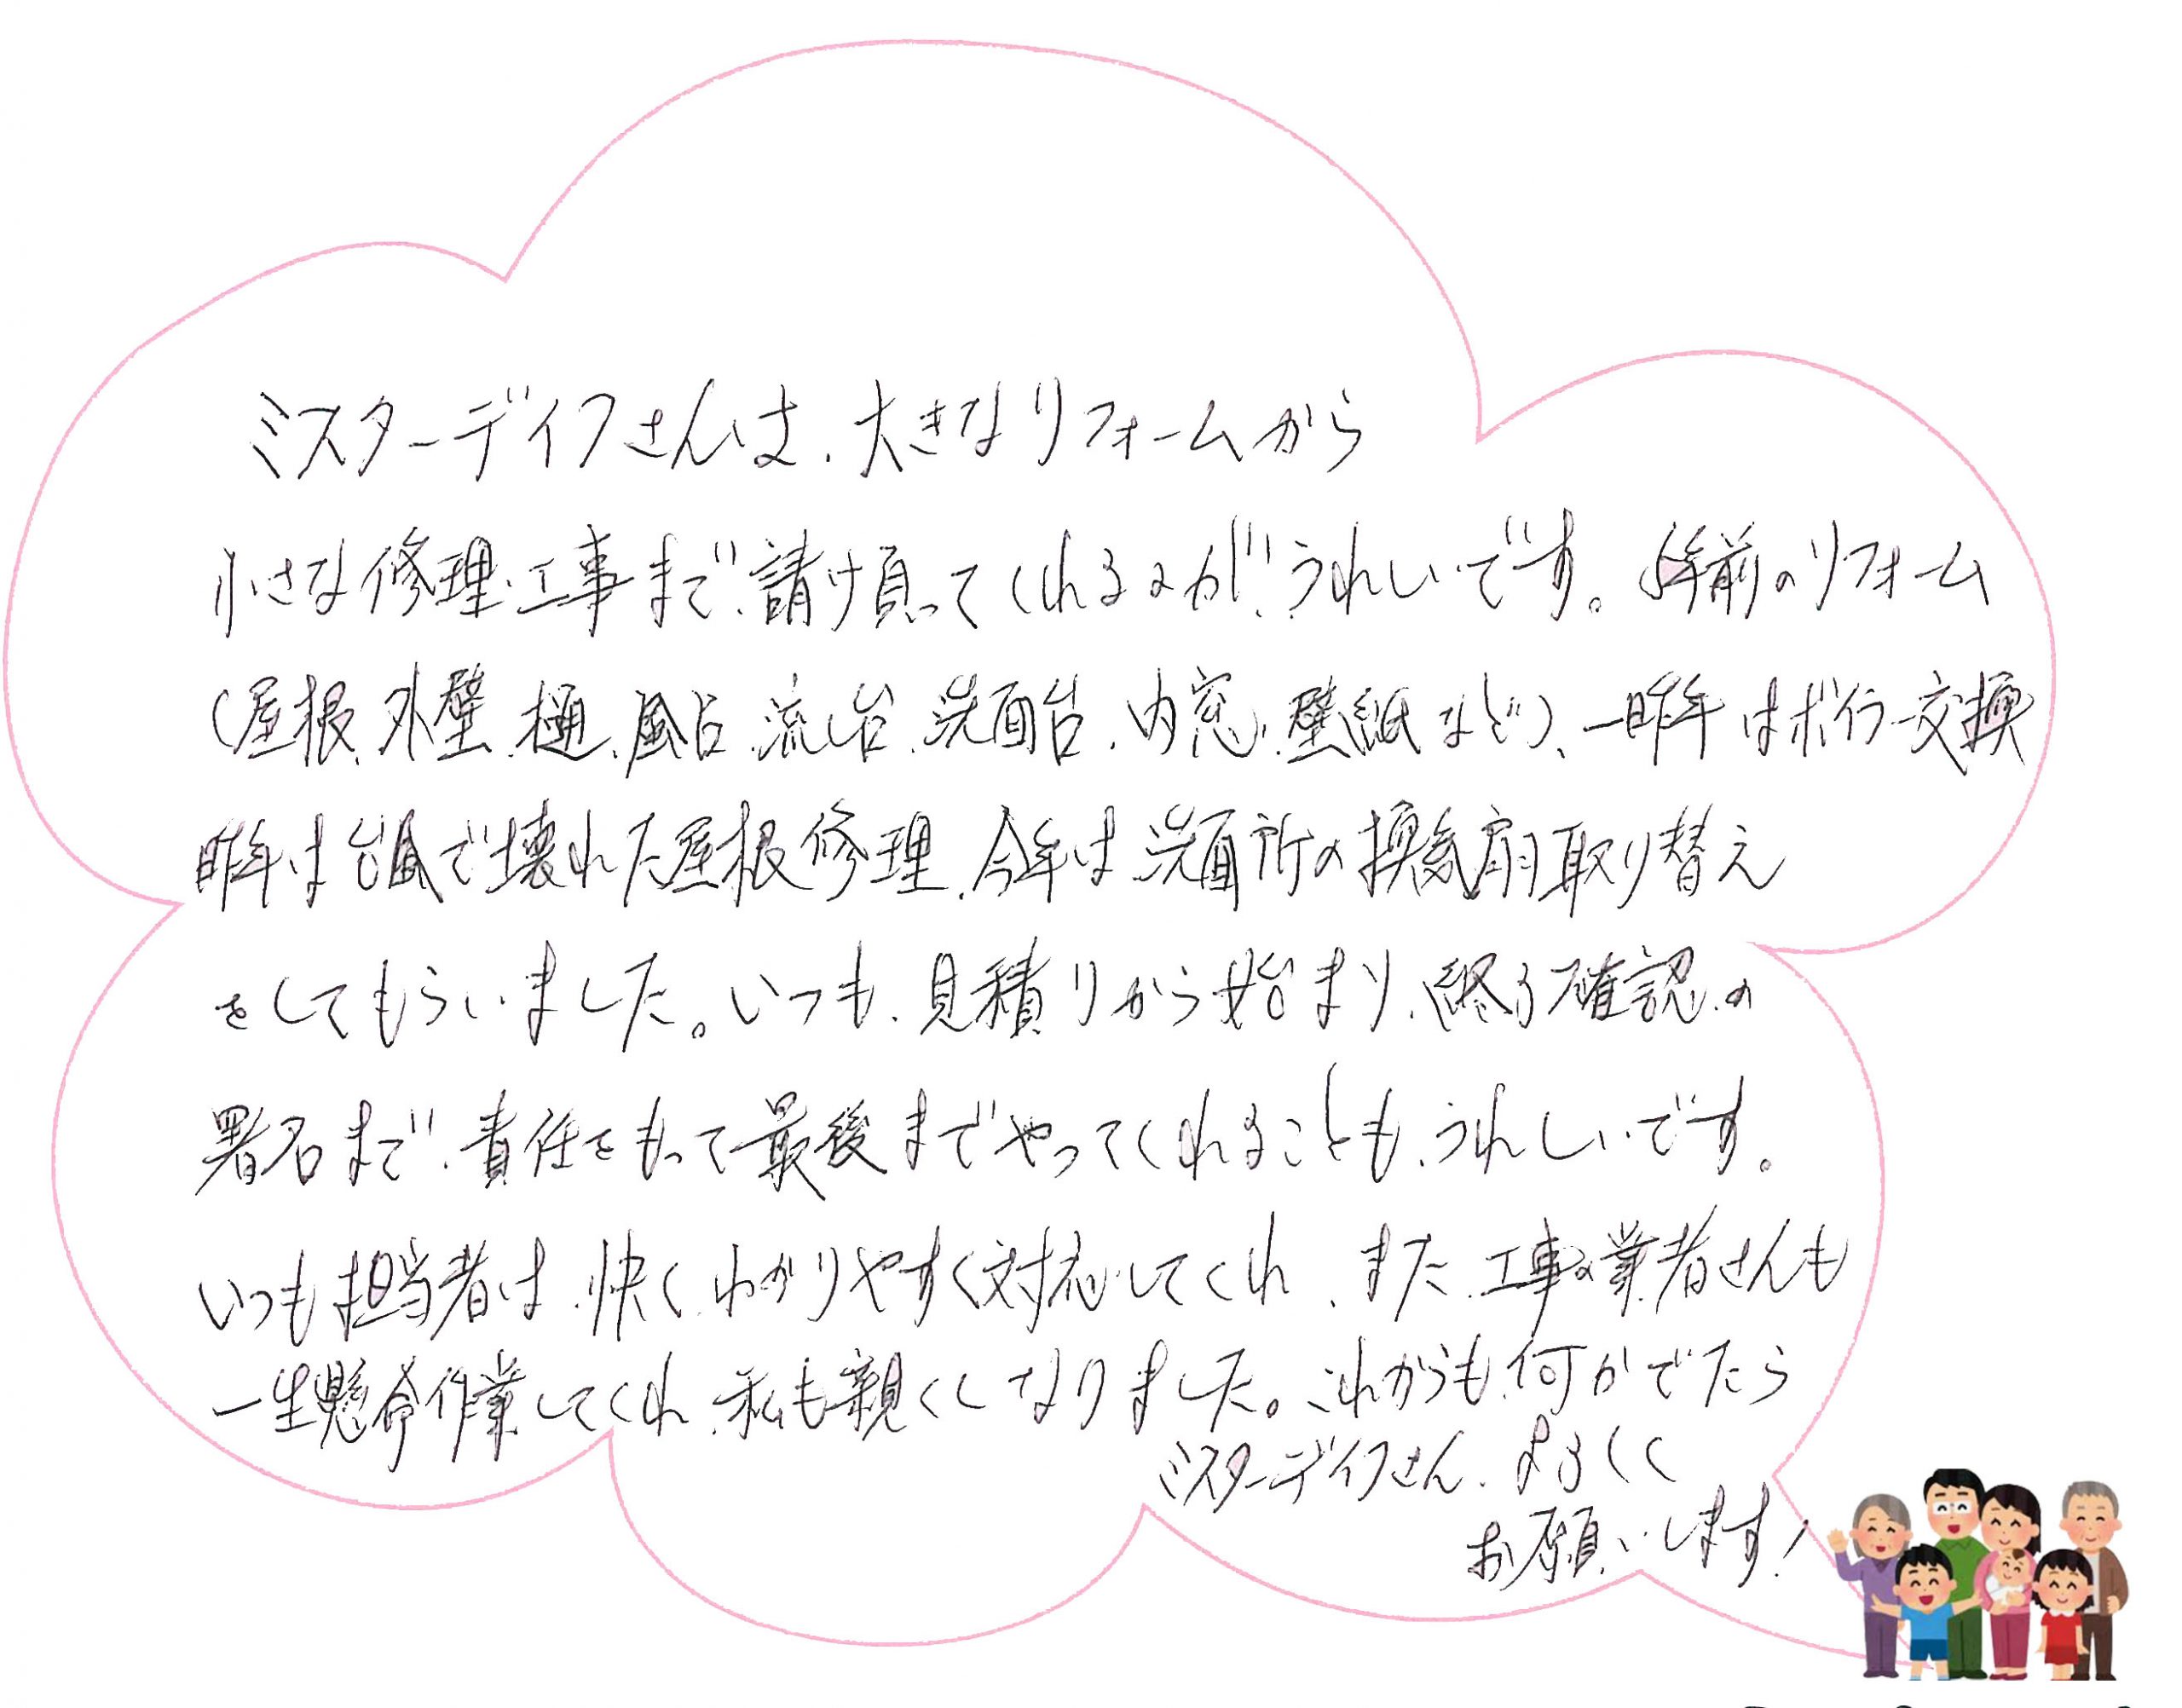 ミスターデイフさんは、大きなリフォームから
小さな修理・工事まで、請け負ってくれるのが、うれしいです。5年前のリフォーム
(屋根、外壁、樋、風呂、流し台、洗面台、内窓、壁紙など)、一昨年はボイラー交換
昨年は台風で壊れた屋根修理、今年は洗面所の換気扇取り替え
をしてもらいました。いつも、見積りから始まり、終了確認の
署名まで、責任をもって最後までやってくれることも、うれしいです。
いつも担当者は、快く、わかりやすく対応してくれ、また、工事の業者さんも
一生懸命作業してくれ、私も親くしなりました。これからも、何かでたら
ミスターデイフさん、よろしく
お願いします!